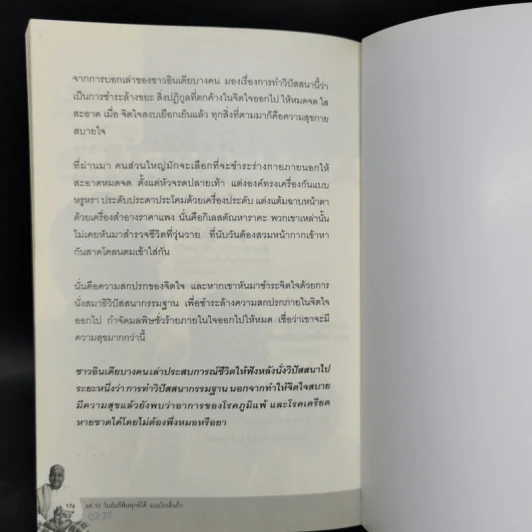 จากการบอกเล่าของชาวอินเดียบางคน มองเรื่องการทำวิปัสสนานี้ว่า
เป็นการชำระล้างขยะ สิ่งปฏิกูลที่ตกค้างในจิตใจออกไป ให้หมดจด ใส
สะอาด เมื่อ จิตใจสงบเยือกเย็นแล้ว ทุกสิ่งที่ตามมาก็คือความสุขกาย
สบายใจ
ที่ผ่านมา คนส่วนใหญ่มักจะเลือกที่จะชำระร่างกายภายนอกให้
สะอาดหมดจด ตั้งแต่หัวจรดปลายเท้า แต่งองค์ทรงเครื่องกันแบบ
หรูหรา ประดับประดาประโคมด้วยเครื่องประดับ แต่งแต้มฉาบหน้าตา
ด้วยเครื่องสำอางราคาแพง นั่นคือกิเลสตัณหาราคะ พวกเขาเหล่านั้น
ไม่เคยหันมาสำรวจชีวิตที่วุ่นวาย ที่นับวันต้องสวมหน้ากากเข้าหา
กันสาดโคลนตมเข้าใส่กัน
นั่นคือความสกปรกของจิตใจ และหากเขาหันมาชำระจิตใจด้วยการ
นั่งสมาธิวิปัสสนากรรมฐาน เพื่อชำระล้างความสกปรกภายในจิตใจ
ออกไป กำจัดมลพิษชั่วร้ายภายในใจออกไปให้หมด เชื่อว่าเขาจะมี
ความสุขมากกว่านี้
ชาวอินเดียบางคนเล่าประสบการณ์ชีวิตให้ฟังหลังนั่งวิปัสสนาไป
ระยะหนึ่งว่า การทำวิปัสสนากรรมฐาน นอกจากทำให้จิตใจสบาย
มีความสุขแล้วยังพบว่าอาการของโรคภูมิแพ้ และโรคเครียด
หายขาดได้โดยไม่ต้องพึ่งหมอหรือยา
176 แค่ 10 วันฉันก็พ้นทุกข์ได้ แบบโกเอ็นก้า